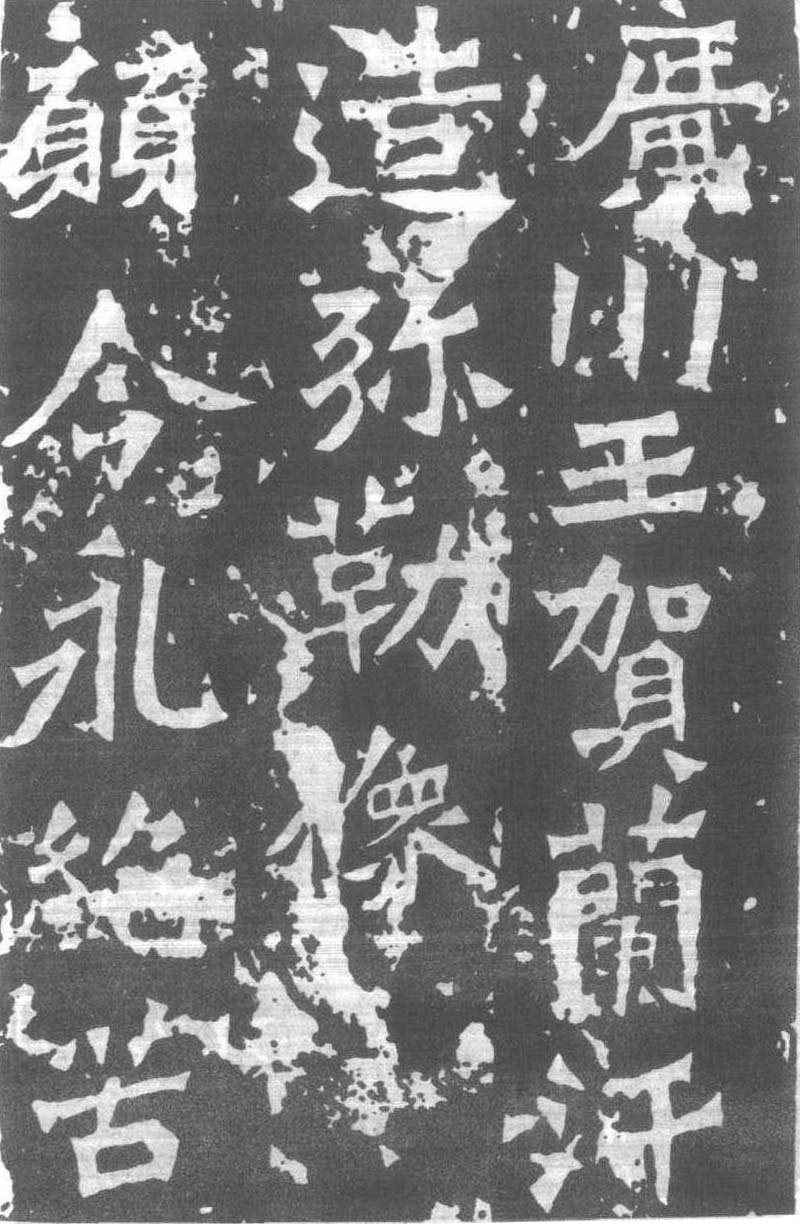 廣川王賀蘭汗
造彌勒像
願令永絕苦